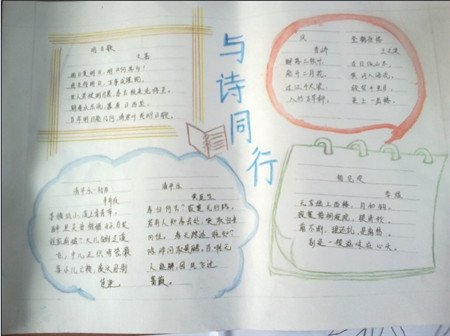 明日歌
文嘉
明日复明日，明日何其多！
日日待明日，万事成蹉跎。
世人若被明日累，春去秋来老将至。
朝看水东流，暮看日西坠。
百年明日能几何，请君听我明日歌。
与诗同行
风
李峤
解落三秋叶，
能开二月花。
过江千尺浪，
入竹万竿斜。
登鹳雀楼
王之涣
白日依山尽，
黄河入海流。
欲穷千里目，
更上一层楼。
清平乐·村居
辛弃疾
茅檐低小，溪上青青草。
醉里吴音相媚好，白发
谁家翁媪？大儿锄豆溪
东，中儿正织鸡笼。最
喜小儿亡赖，溪头卧剥
莲蓬。
清平乐
黄庭坚
春归何处？寂寞无行路。
若有人知春去处，唤取归来
同住。春无踪迹谁知？
除非问取黄鹂。百啭无
人能解，因风飞过
蔷薇。
相见欢
李煜
无言独上西楼，月如钩，
寂寞梧桐深院，锁清秋。
剪不断，理还乱，是离愁，
别是一般滋味在心头。